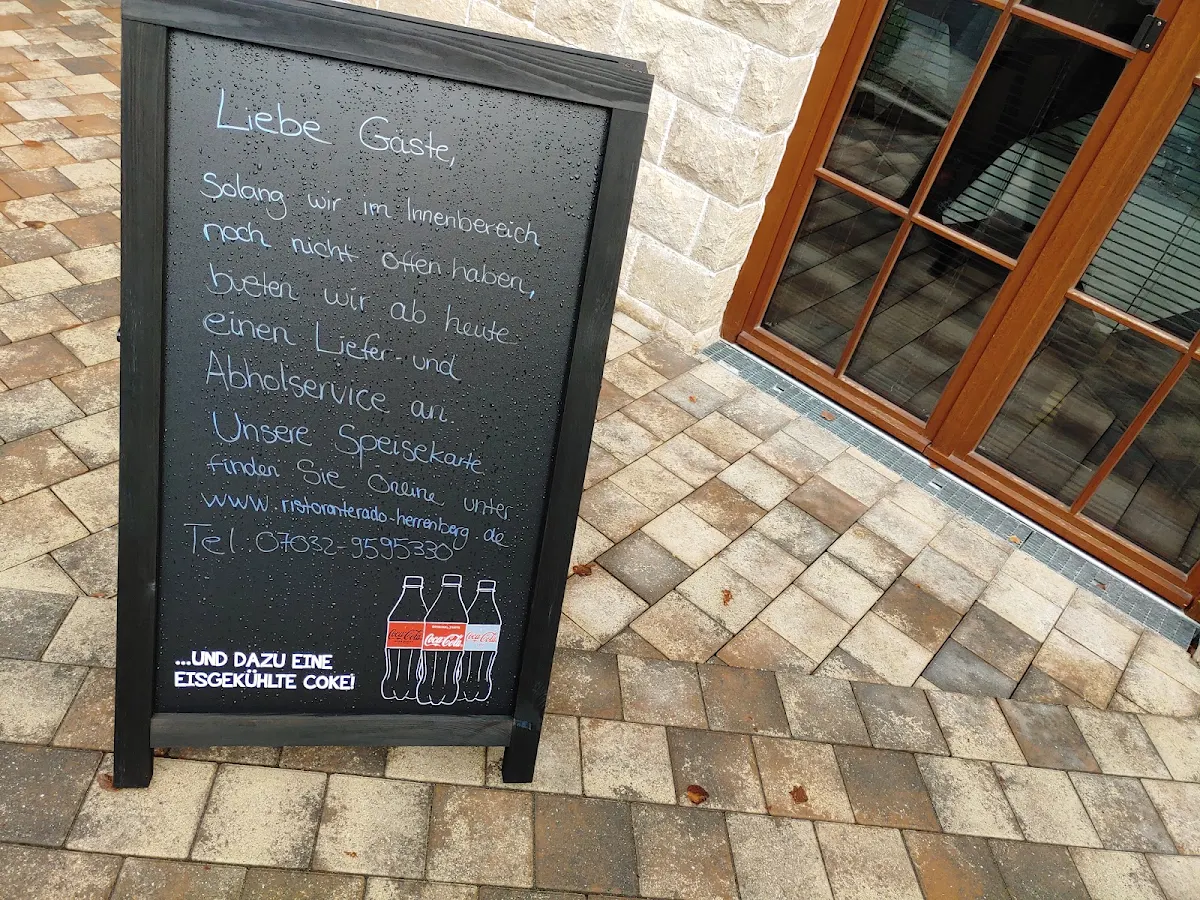 Liebe Gäste,
Solang wir im Innenbereich
noch nicht offen haben,
bieten wir ab heute
einen Liefer- und
Abholservice an.
Unsere Speisekarte
finden Sie Online unter
www.ristoranterado-herrenberg.de
Tel.: 07032-9595330
...UND DAZU EINE
EISGEKÜHLTE COKE!
Coca-Cola Coca-Cola Coca-Cola